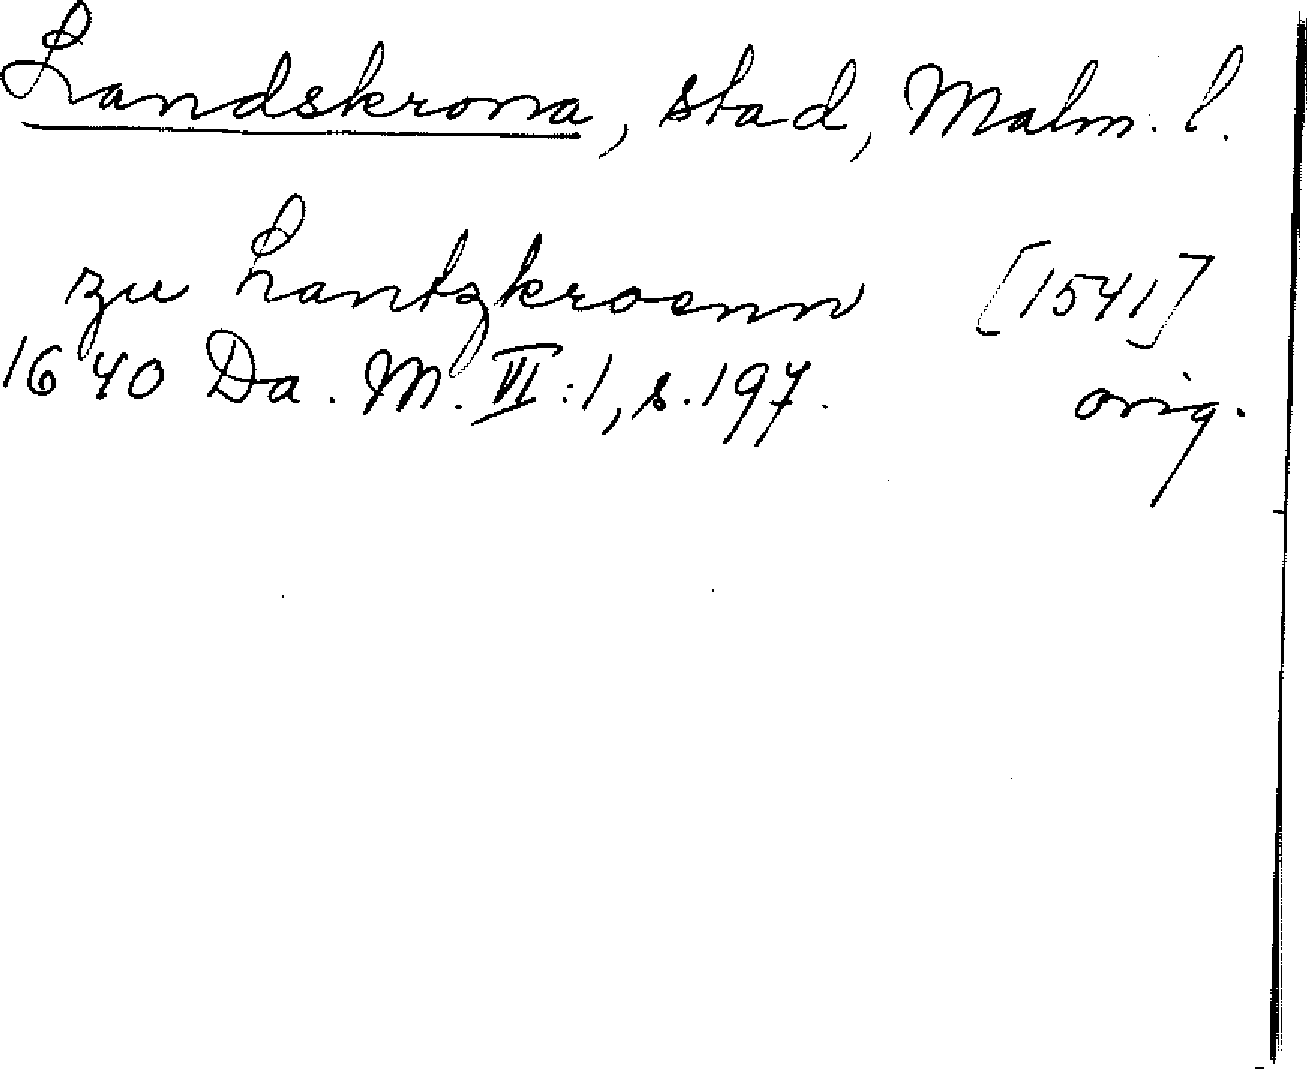 Landskrona, stad, Malm. l.
zu Lantzkroenn [1541]
1640 Da. M. VI:1, s. 197. orig.